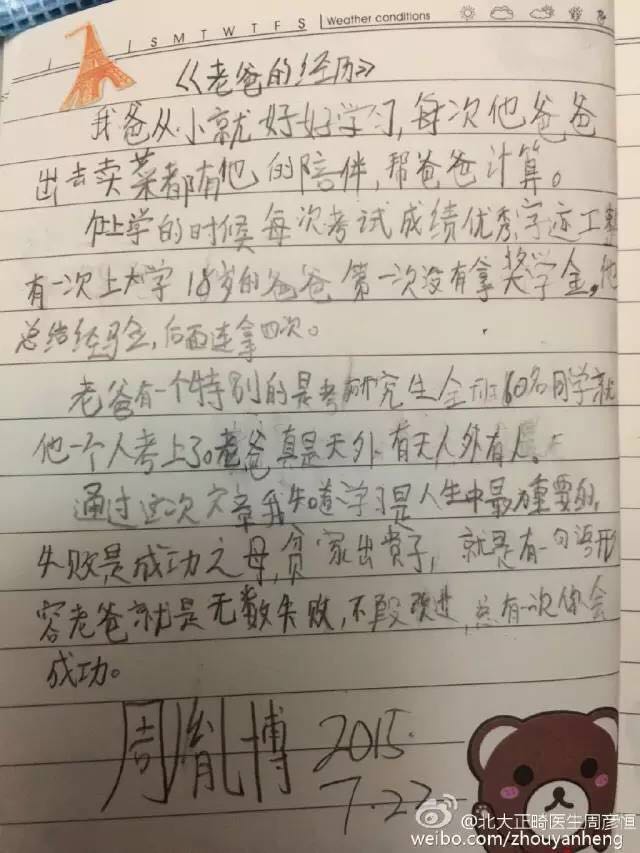 S M T W T F S Weather conditions
《老爸的经历》
我爸从小就好好学习,每次他爸爸
出去卖菜都有他的陪伴,帮爸爸计算。
在上学的时候每次考试成绩优秀字迹工整
有一次上大学18岁的爸爸第一次没有拿奖学金,他
总结经验,后面连拿四次。
老爸有一个特别的是考研究生全班60名同学就
他一个人考上了。老爸真是天外有天人外有人。
通过这次文章我知道学习是人生中最重要的,
失败是成功之母,贫家出贵子,就是有一句语形
容老爸就是无数失败,不段改进,总有一次你会
成功。
周胤博 2015.
7.22
@北大正畸医生周彦恒
weibo.com/zhouyanheng